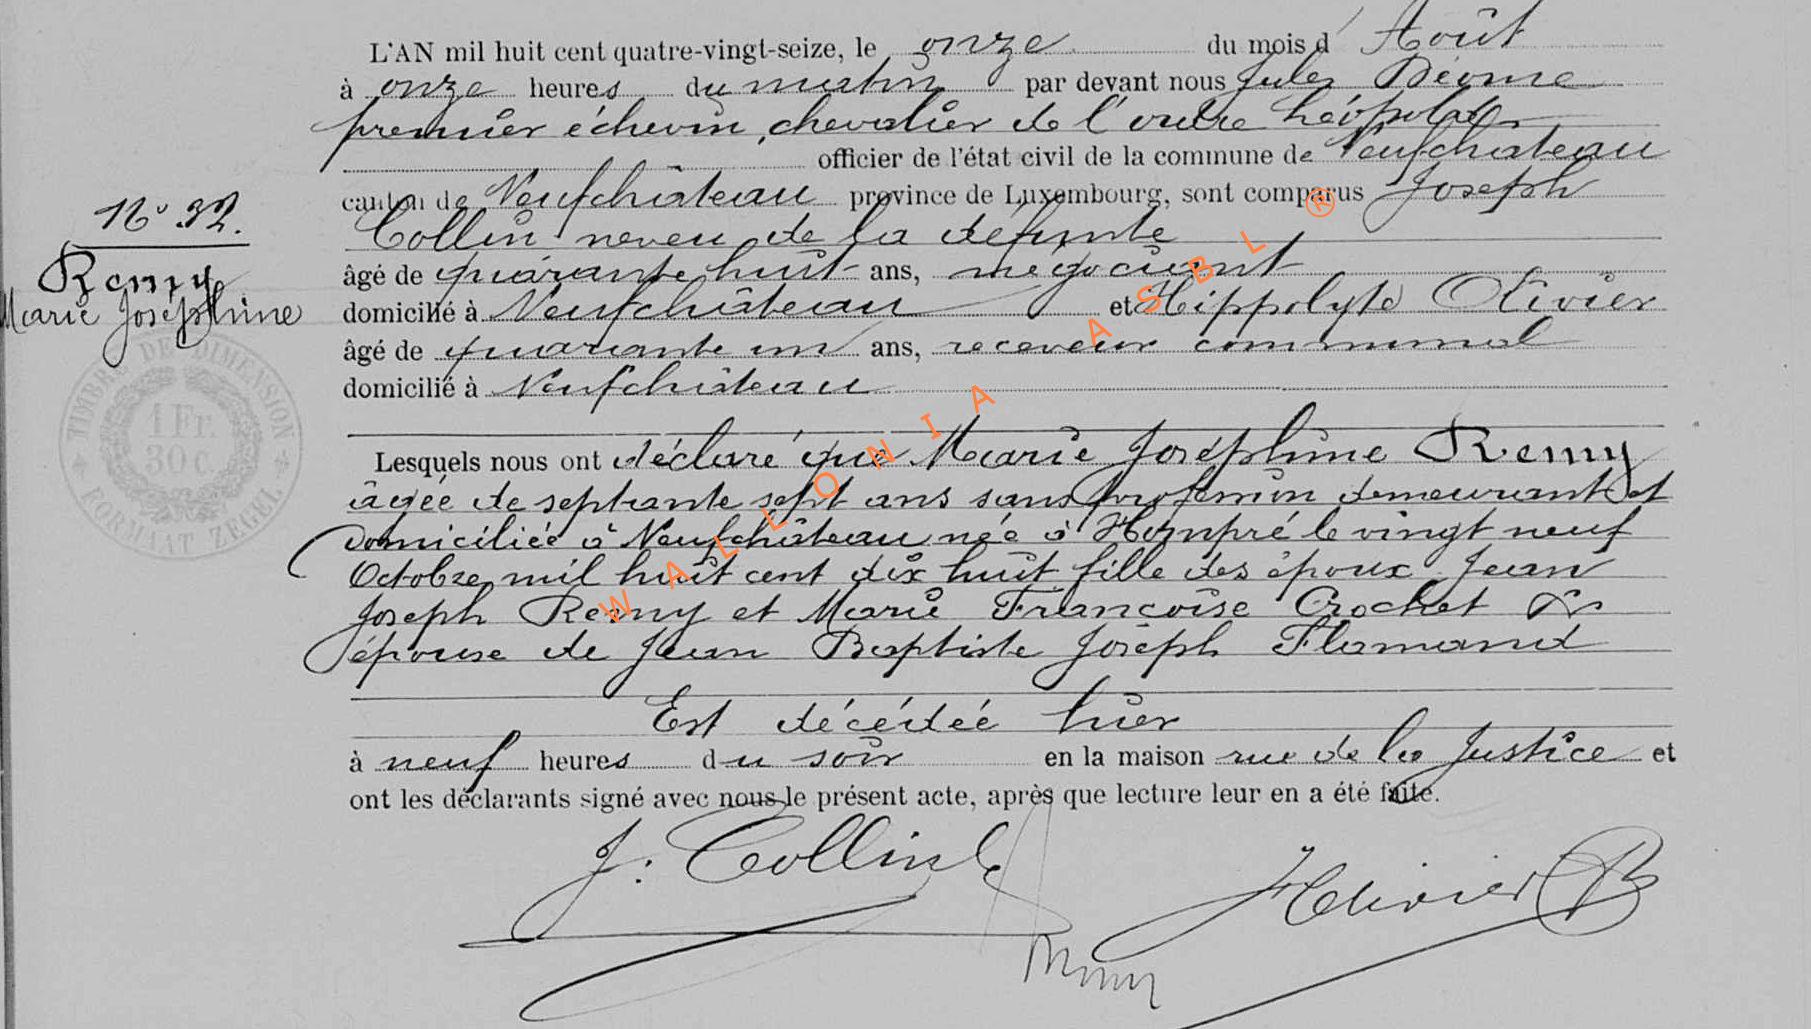 L'AN mil huit cent quatre-vingt-seize, le onze du mois d'Août
à onze heures du matin par devant nous Jules
premier échevin, chevalier de l'ordre Léopold
officier de l'état civil de la commune de Neufchâteau
canton de Neufchâteau province de Luxembourg, sont comparus Joseph
Collin neveu de la défunte
âgé de quarante huit ans, négociant
domicilié à Neufchâteau et Hippolyte Olivier
âgé de quarante un ans, receveur communal
domicilié à Neufchâteau
N° 32.
Remy
Marie Joséphine
TIMBRE DE DIMENSION
1 Fr.
30 c.
FORMAAT ZEGEL
Lesquels nous ont déclaré que Marie Joséphine Remy
âgée de septante sept ans sans profession demeurant et
domiciliée à Neufchâteau née à Hompré le vingt neuf
Octobre mil huit cent dix huit fille des époux Jean
Joseph Remy et Marie Françoise Crochet &
épouse de Jean Baptiste Joseph Flamand
Est décédée hier
à neuf heures du soir en la maison rue de la Justice et
ont les déclarants signé avec nous le présent acte, après que lecture leur en a été faite.
J. Collin
HOlivier
WALLONIA ASBL ®